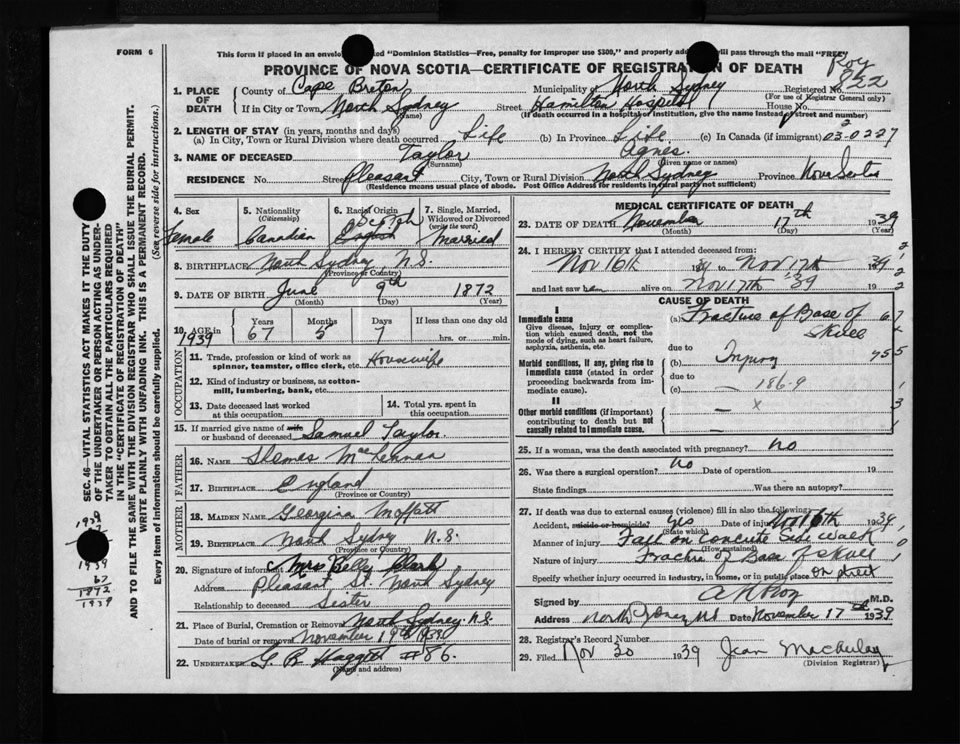 FORM 6
This form if placed in an envelo ked "Dominion Statistics—Free, penalty for improper use $300," and properly ad will pass through the mail "FREE"
PROVINCE OF NOVA SCOTIA—CERTIFICATE OF REGISTRATION OF DEATH
Roy
1. PLACE OF DEATH
County of Cape Breton
Municipality of North Sydney
Registered No. 252
(For use of Registrar General only)
If in City or Town North Sydney
(Name)
Street Hamilton Hospital House No.
(If death occurred in a hospital or institution, give the name instead of street and number)
2. LENGTH OF STAY (in years, months and days)
(a) In City, Town or Rural Division where death occurred Life (b) In Province Life (c) In Canada (if immigrant) 03-0227
2
3. NAME OF DECEASED Taylor Agnes.
(Surname) (Given name or names)
RESIDENCE No. Street Pleasant City, Town or Rural Division North Sydney Province Nova Scotia
(Residence means usual place of abode. Post Office Address for residents in rural parts not sufficient)
4. Sex
Female
5. Nationality
(Citizenship)
Canadian
6. Racial Origin
Scotch
English
7. Single, Married, Widowed or Divorced
(write the word)
Married
8. BIRTHPLACE North Sydney, N.S.
(Province or Country)
9. DATE OF BIRTH June 9th 1872
(Month) (Day) (Year)
10. AGE in
1939
Years Months Days If less than one day old
67 5 7 hrs. or min.
OCCUPATION
11. Trade, profession or kind of work as spinner, teamster, office clerk, etc. Housewife
12. Kind of industry or business, as cotton-mill, lumbering, bank, etc.
13. Date deceased last worked at this occupation
14. Total yrs. spent in this occupation
15. If married give name of wife or husband of deceased Samuel Taylor.
FATHER
16. Name MacLennan
17. Birthplace England
(Province or Country)
MOTHER
18. Maiden Name Georgina Moffatt
19. Birthplace North Sydney N.S.
(Province or Country)
20. Signature of informant Mrs Clark
Address Pleasant St. North Sydney
Relationship to deceased Sister
21. Place of Burial, Cremation or Removal North Sydney. N.S.
Date of burial or removal November 19th 1939
22. Undertaker G. B. #86.
MEDICAL CERTIFICATE OF DEATH
23. DATE OF DEATH November 17th 1939
(Month) (Day) (Year)
24. I HEREBY CERTIFY that I attended deceased from:
Nov 16th 1939 to Nov 17th 1939
and last saw h alive on Nov 17th 1939
CAUSE OF DEATH
I
Immediate cause
Give disease, injury or complication which caused death, not the mode of dying, such as heart failure, asphyxia, asthenia, etc.
(a) Fracture of Base of Skull
due to
Morbid conditions, if any, giving rise to immediate cause (stated in order proceeding backwards from immediate cause).
(b) Injury
due to
(c) — 186-9
II
Other morbid conditions (if important) contributing to death but not causally related to immediate cause.
— x
—
25. If a woman, was the death associated with pregnancy? no
26. Was there a surgical operation? no Date of operation 19
State findings Was there an autopsy?
27. If death was due to external causes (violence) fill in also the following:
Accident, suicide or homicide? yes Date of injury Nov 16th 1939
(State which)
Manner of injury Fall on concrete side walk
(How sustained)
Nature of injury Fractre of Base of skull
Specify whether injury occurred in industry, in home, or in public place on street
Signed by M.D.
Address North Sydney NS Date November 17th 1939
28. Registrar's Record Number
29. Filed Nov 30 1939 Jean Macaulay
(Division Registrar)
SEC. 46—VITAL STATISTICS ACT MAKES IT THE DUTY
OF THE UNDERTAKER OR PERSON ACTING AS UNDER-
TAKER TO OBTAIN ALL THE PARTICULARS REQUIRED
IN THE "CERTIFICATE OF REGISTRATION OF DEATH"
AND TO FILE THE SAME WITH THE DIVISION REGISTRAR WHO SHALL ISSUE THE BURIAL PERMIT.
WRITE PLAINLY WITH UNFADING INK. THIS IS A PERMANENT RECORD.
Every item of information should be carefully supplied. (See reverse side for instructions.)
1939
67
1872
1939